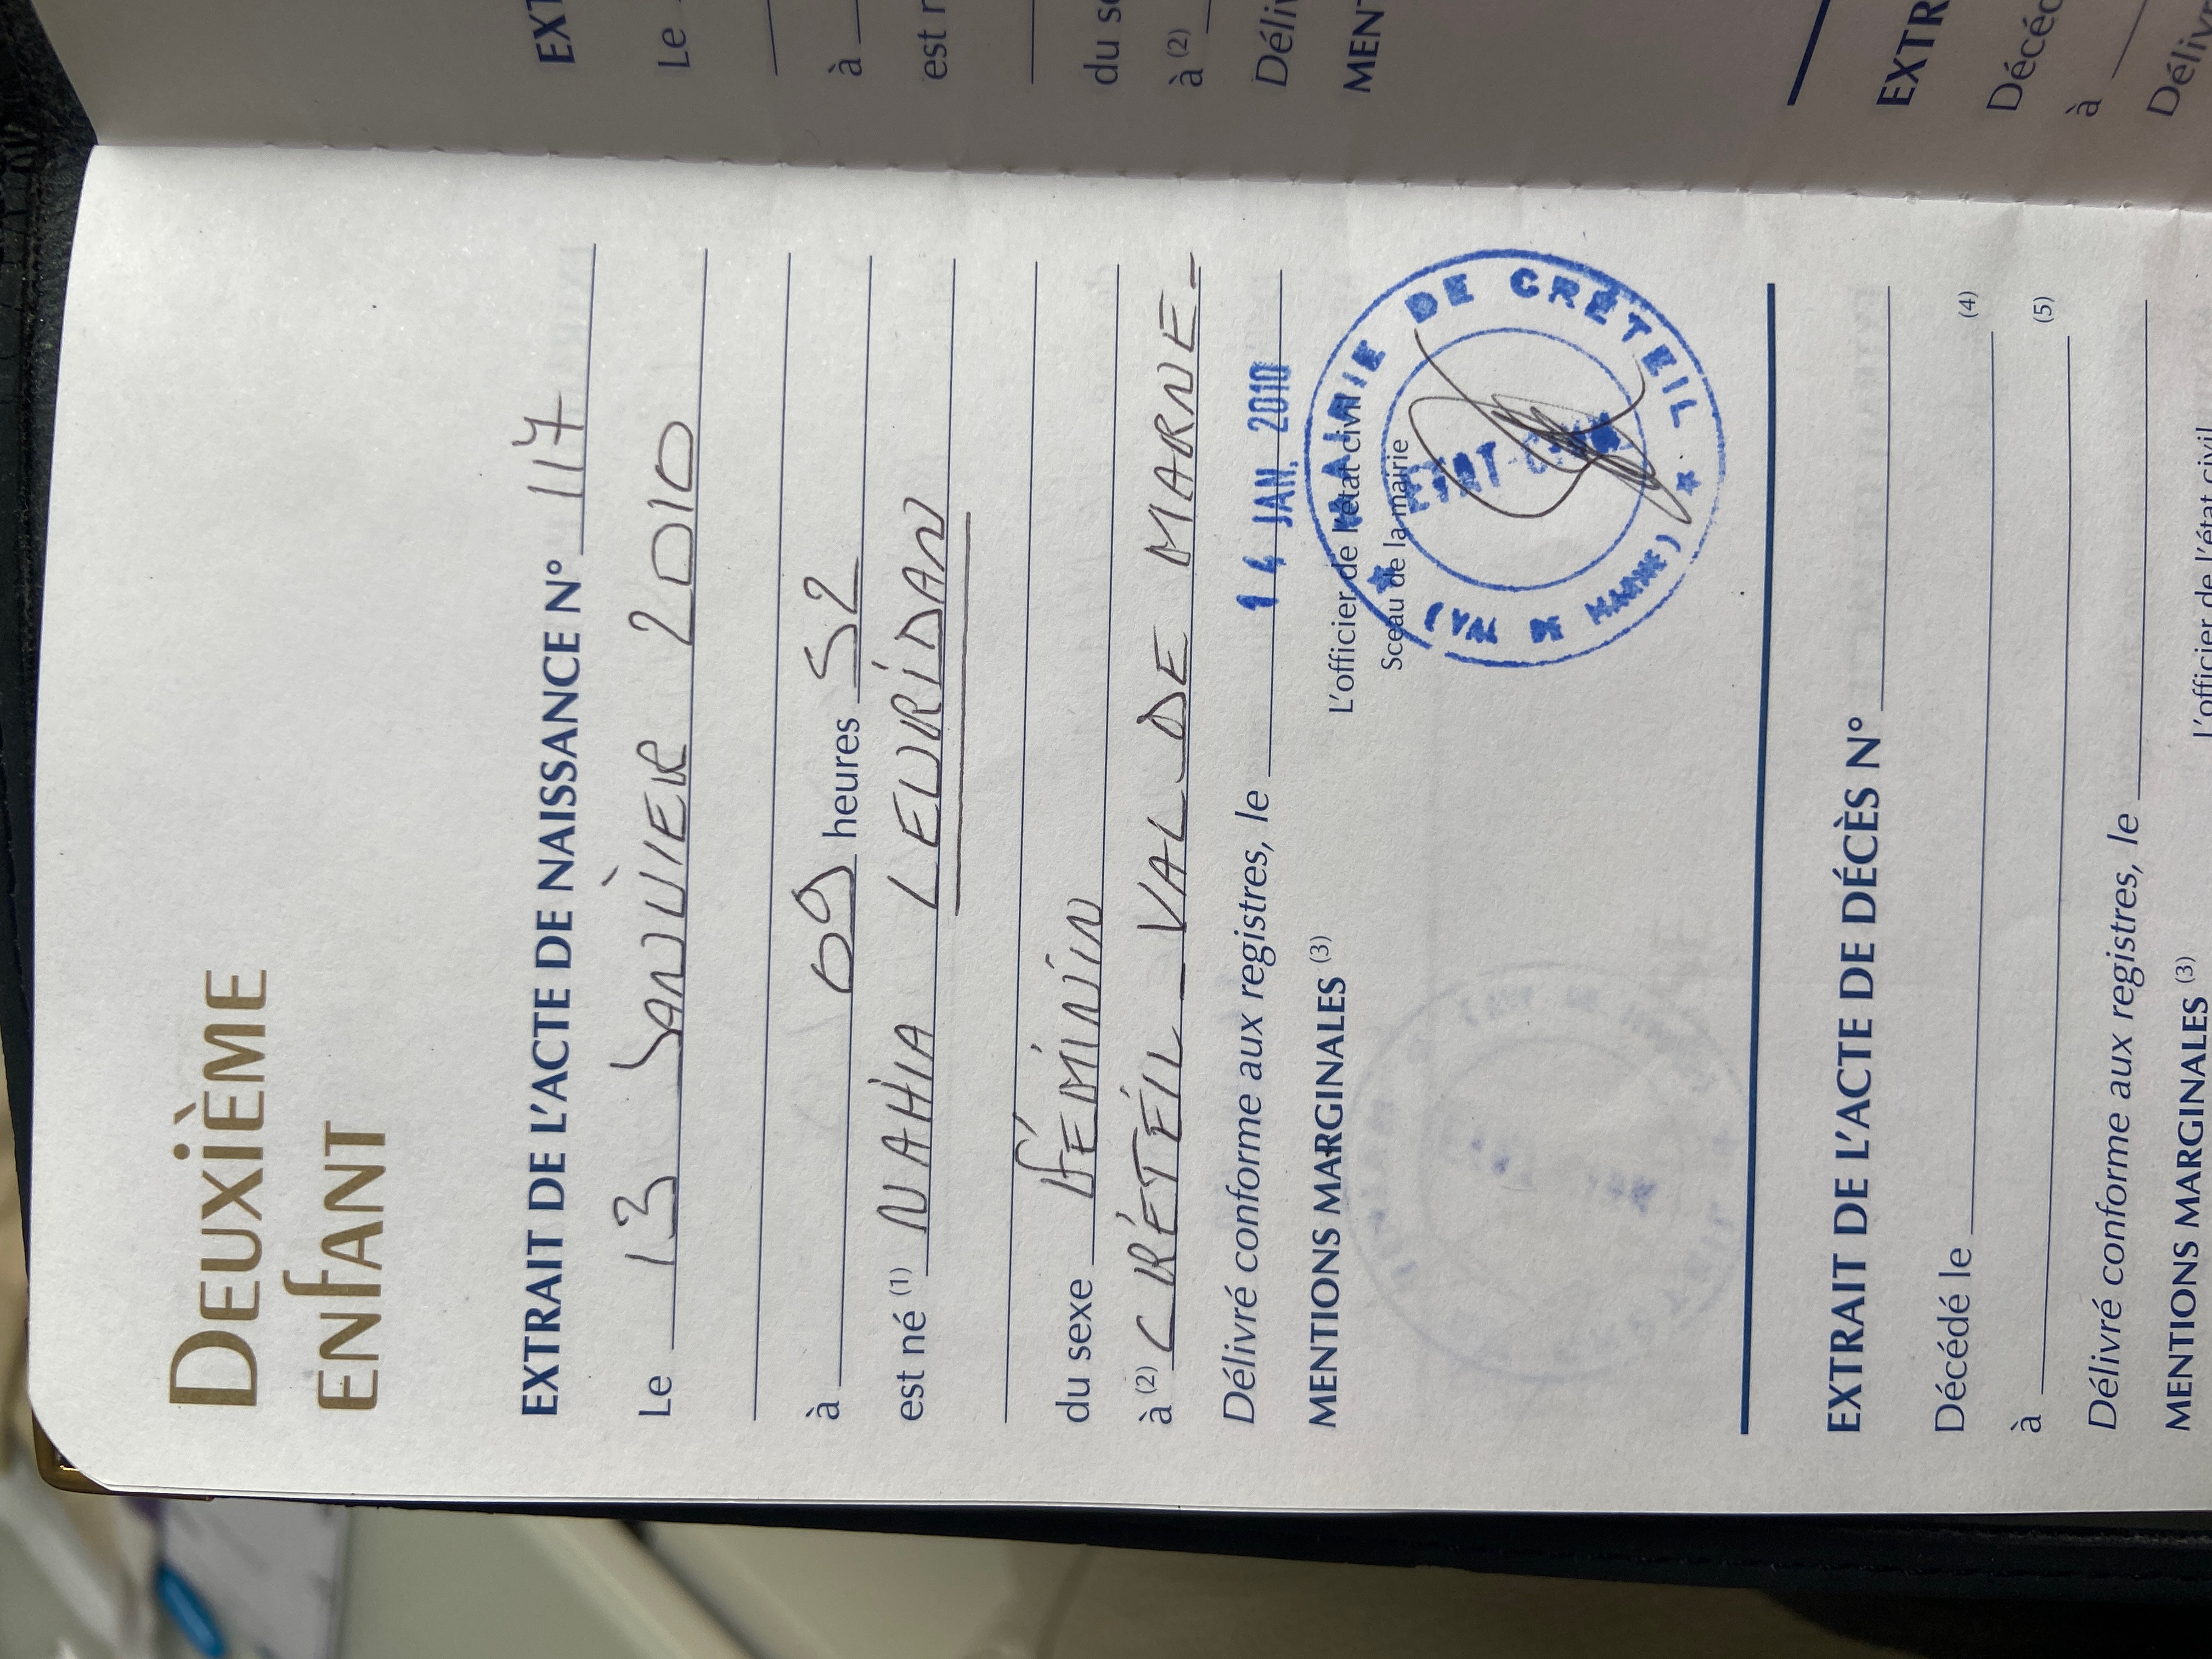 DEUXIÈME
ENFANT
EXTRAIT DE L'ACTE DE NAISSANCE N° 117
Le 13 JANVIER 2010
à 09 heures 52
est né (1) NAHIA LEURIDAN
du sexe FÉMININ
à (2) CRÉTEIL _ VAL DE MARNE_
Délivré conforme aux registres, le 14 JAN. 2010
MENTIONS MARGINALES (3)
L'officier de l'état civil
Sceau de la mairie
MAIRIE DE CRÉTEIL
(VAL DE MARNE)
ETAT-CIVIL
EXTRAIT DE L'ACTE DE DÉCÈS N°
Décédé le (4)
à (5)
Délivré conforme aux registres, le
MENTIONS MARGINALES (3)
L'officier de l'état civil
EXT
Le
à
est n
du s
à (2)
Déliv
MENT
EXTR
Décéd
à
Délivr